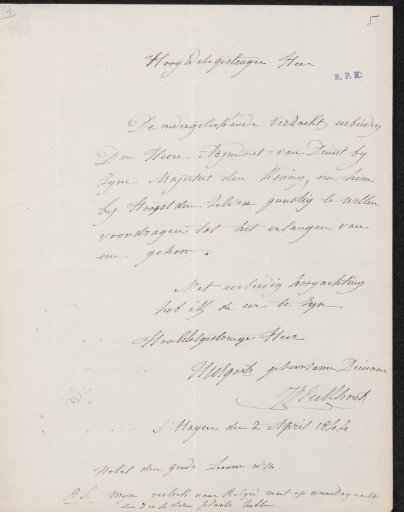 5
HoogEdelgestrenge Heer
R.P.K.
De ondergeteekende verzoekt eerbiedig
Den Heere Adjudant van Dienst by
Zyne Majesteit den Koning, om hem
by Hoogstdenzelven gunstig te willen
voordragen tot het erlangen van
een gehoor.
Met eerbiedige hoogachting
heb ik de eer te zyn
HoogEdelgestrenge Heer
UwEgest. gehoorzame Dienaar
Eeckhout
s'Hagen den 2 April 1844
Hotel den Goude Leeuw
P.S. Myn vertrek naar België moet op woensdag
den 3 plaats hebben